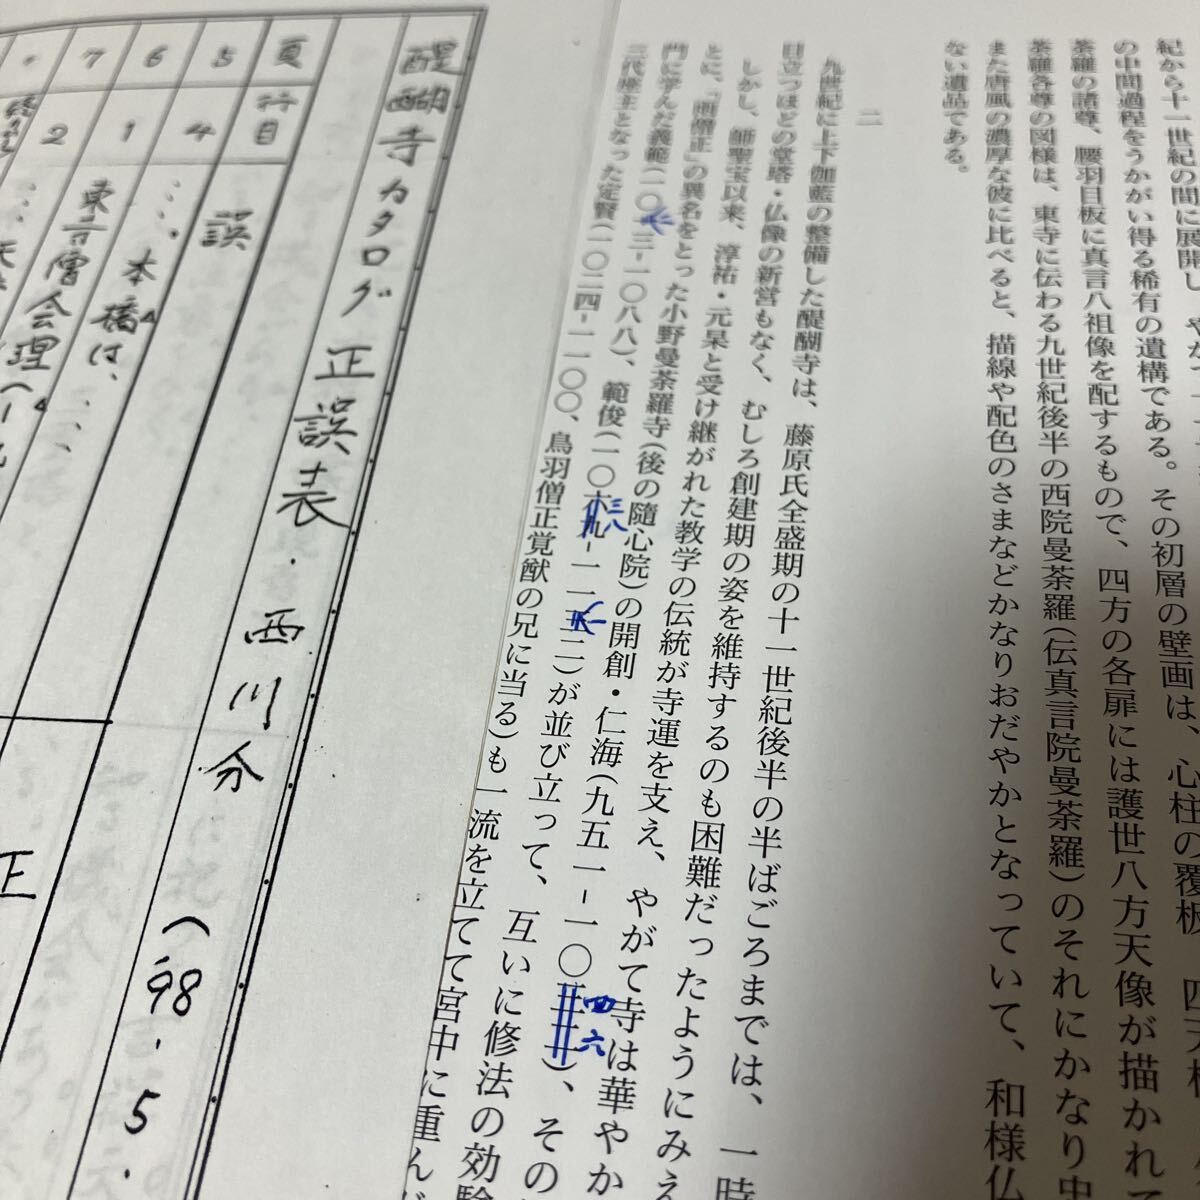 紀から十一世紀の間に展開し
の中間過程をうかがい得る稀有の遺構である。その初層の壁画は、心柱の覆板
荼羅の諸尊、腰羽目板に真言八祖像を配するもので、四方の各扉には護世八方天像が描かれて
荼羅各尊の図様は、東寺に伝わる九世紀後半の西院曼荼羅(伝真言院曼荼羅)のそれにかなり忠
また唐風の濃厚な彼に比べると、描線や配色のさまなどかなりおだやかとなっていて、和様仏
ない遺品である。
二
九世紀に上下伽藍の整備した醍醐寺は、藤原氏全盛期の十一世紀後半の半ばごろまでは、一時
目立つほどの堂塔・仏像の新営もなく、むしろ創建期の姿を維持するのも困難だったようにみえ
しかし、師聖宝以来、淳祐・元杲と受け継がれた教学の伝統が寺運を支え、やがて寺は華やか
とに、「雨僧正」の異名をとった小野曼荼羅寺(後の随心院)の開創・仁海(九五一-一〇
四六
)、その
門に学んだ義範(一〇
三-一〇八八)、範俊(一〇
三八
-一一
二)が並び立って、互いに修法の効験
三代座主となった定賢(一〇二四-一一〇〇、鳥羽僧正覚猷の兄に当る)も一流を立てて宮中に重ん
醍醐寺カタログ正誤表・西川分
('98.5.
頁
行目
誤
正
5
4
6
1
…、本橋は、
7
2
東寺僧会理(